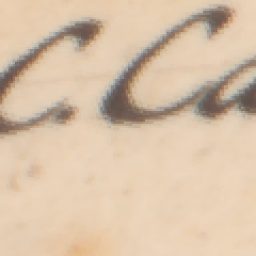 C. Ca